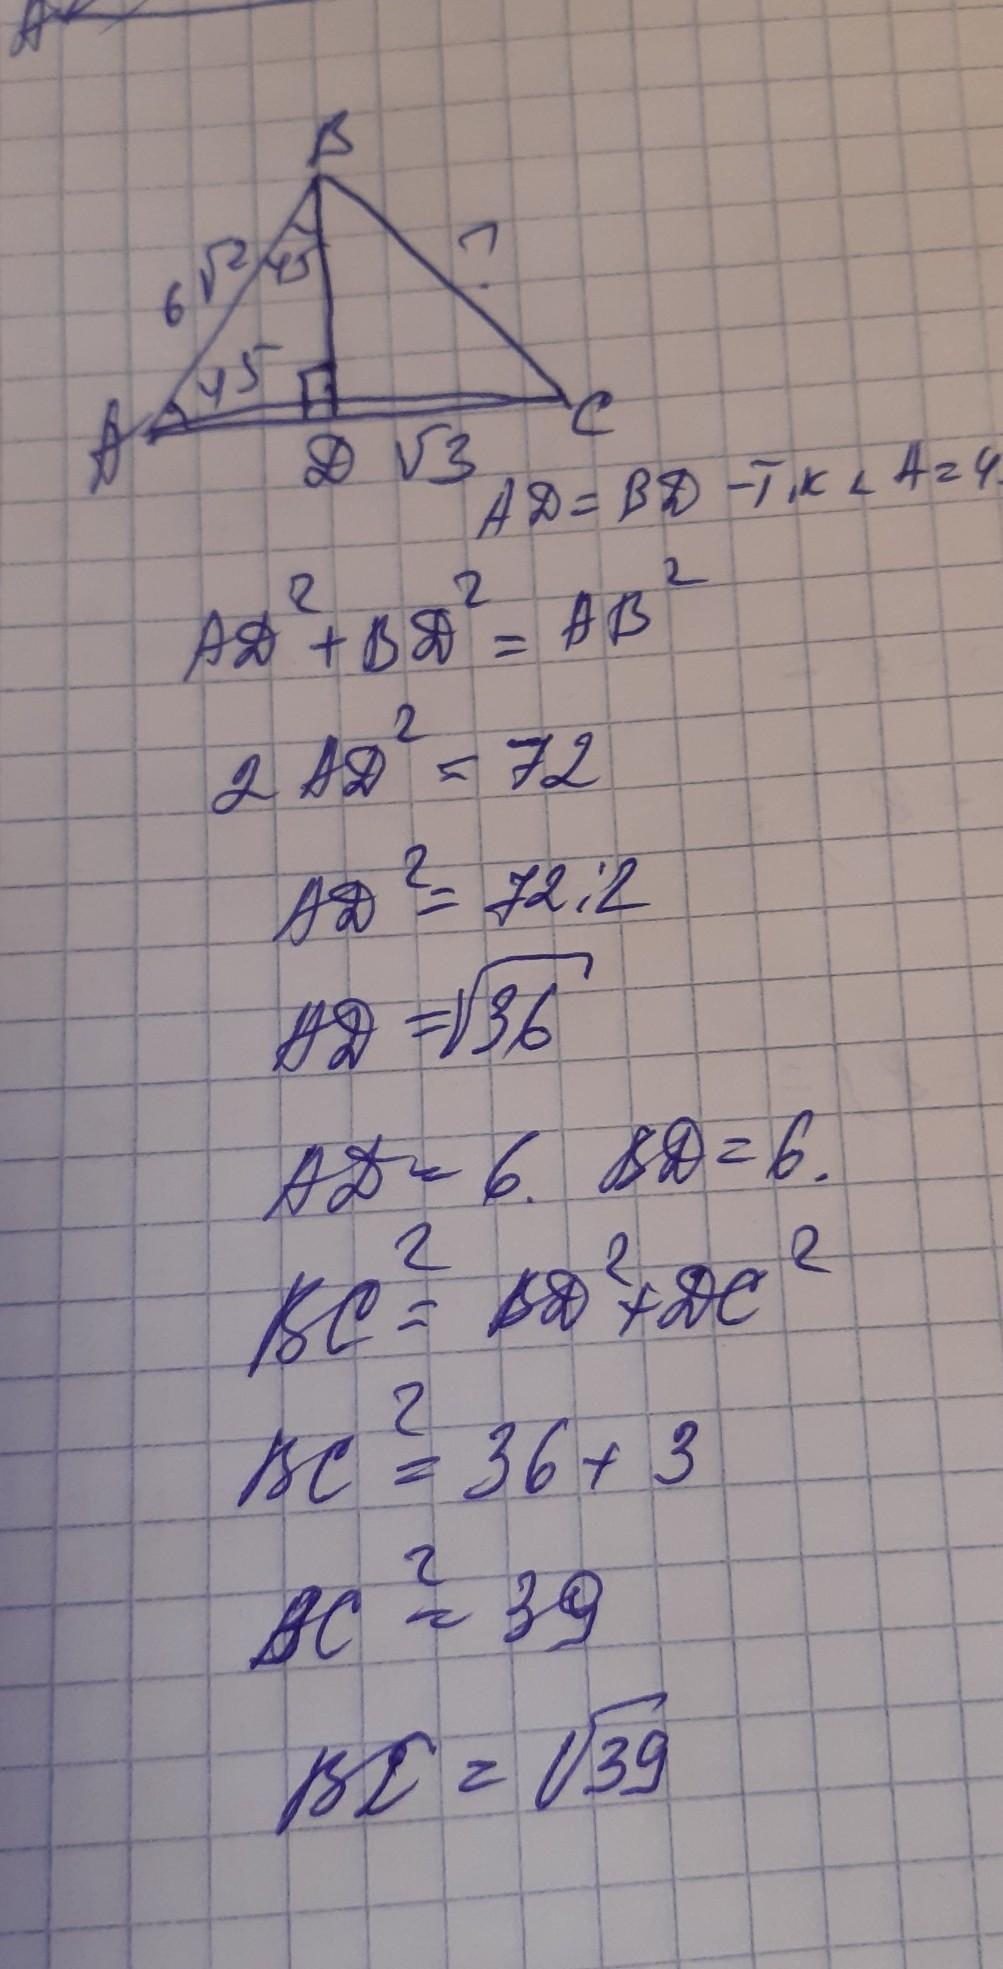 A
B
6√2 45 ?
A 45 C
D √3
AD = BD - т.к ∠A = 4
AD² + BD² = AB²
2 AD² = 72
AD² = 72:2
AD = √36
AD = 6. BD = 6.
BC² = BD² + DC²
BC² = 36 + 3
BC² = 39
BC = √39